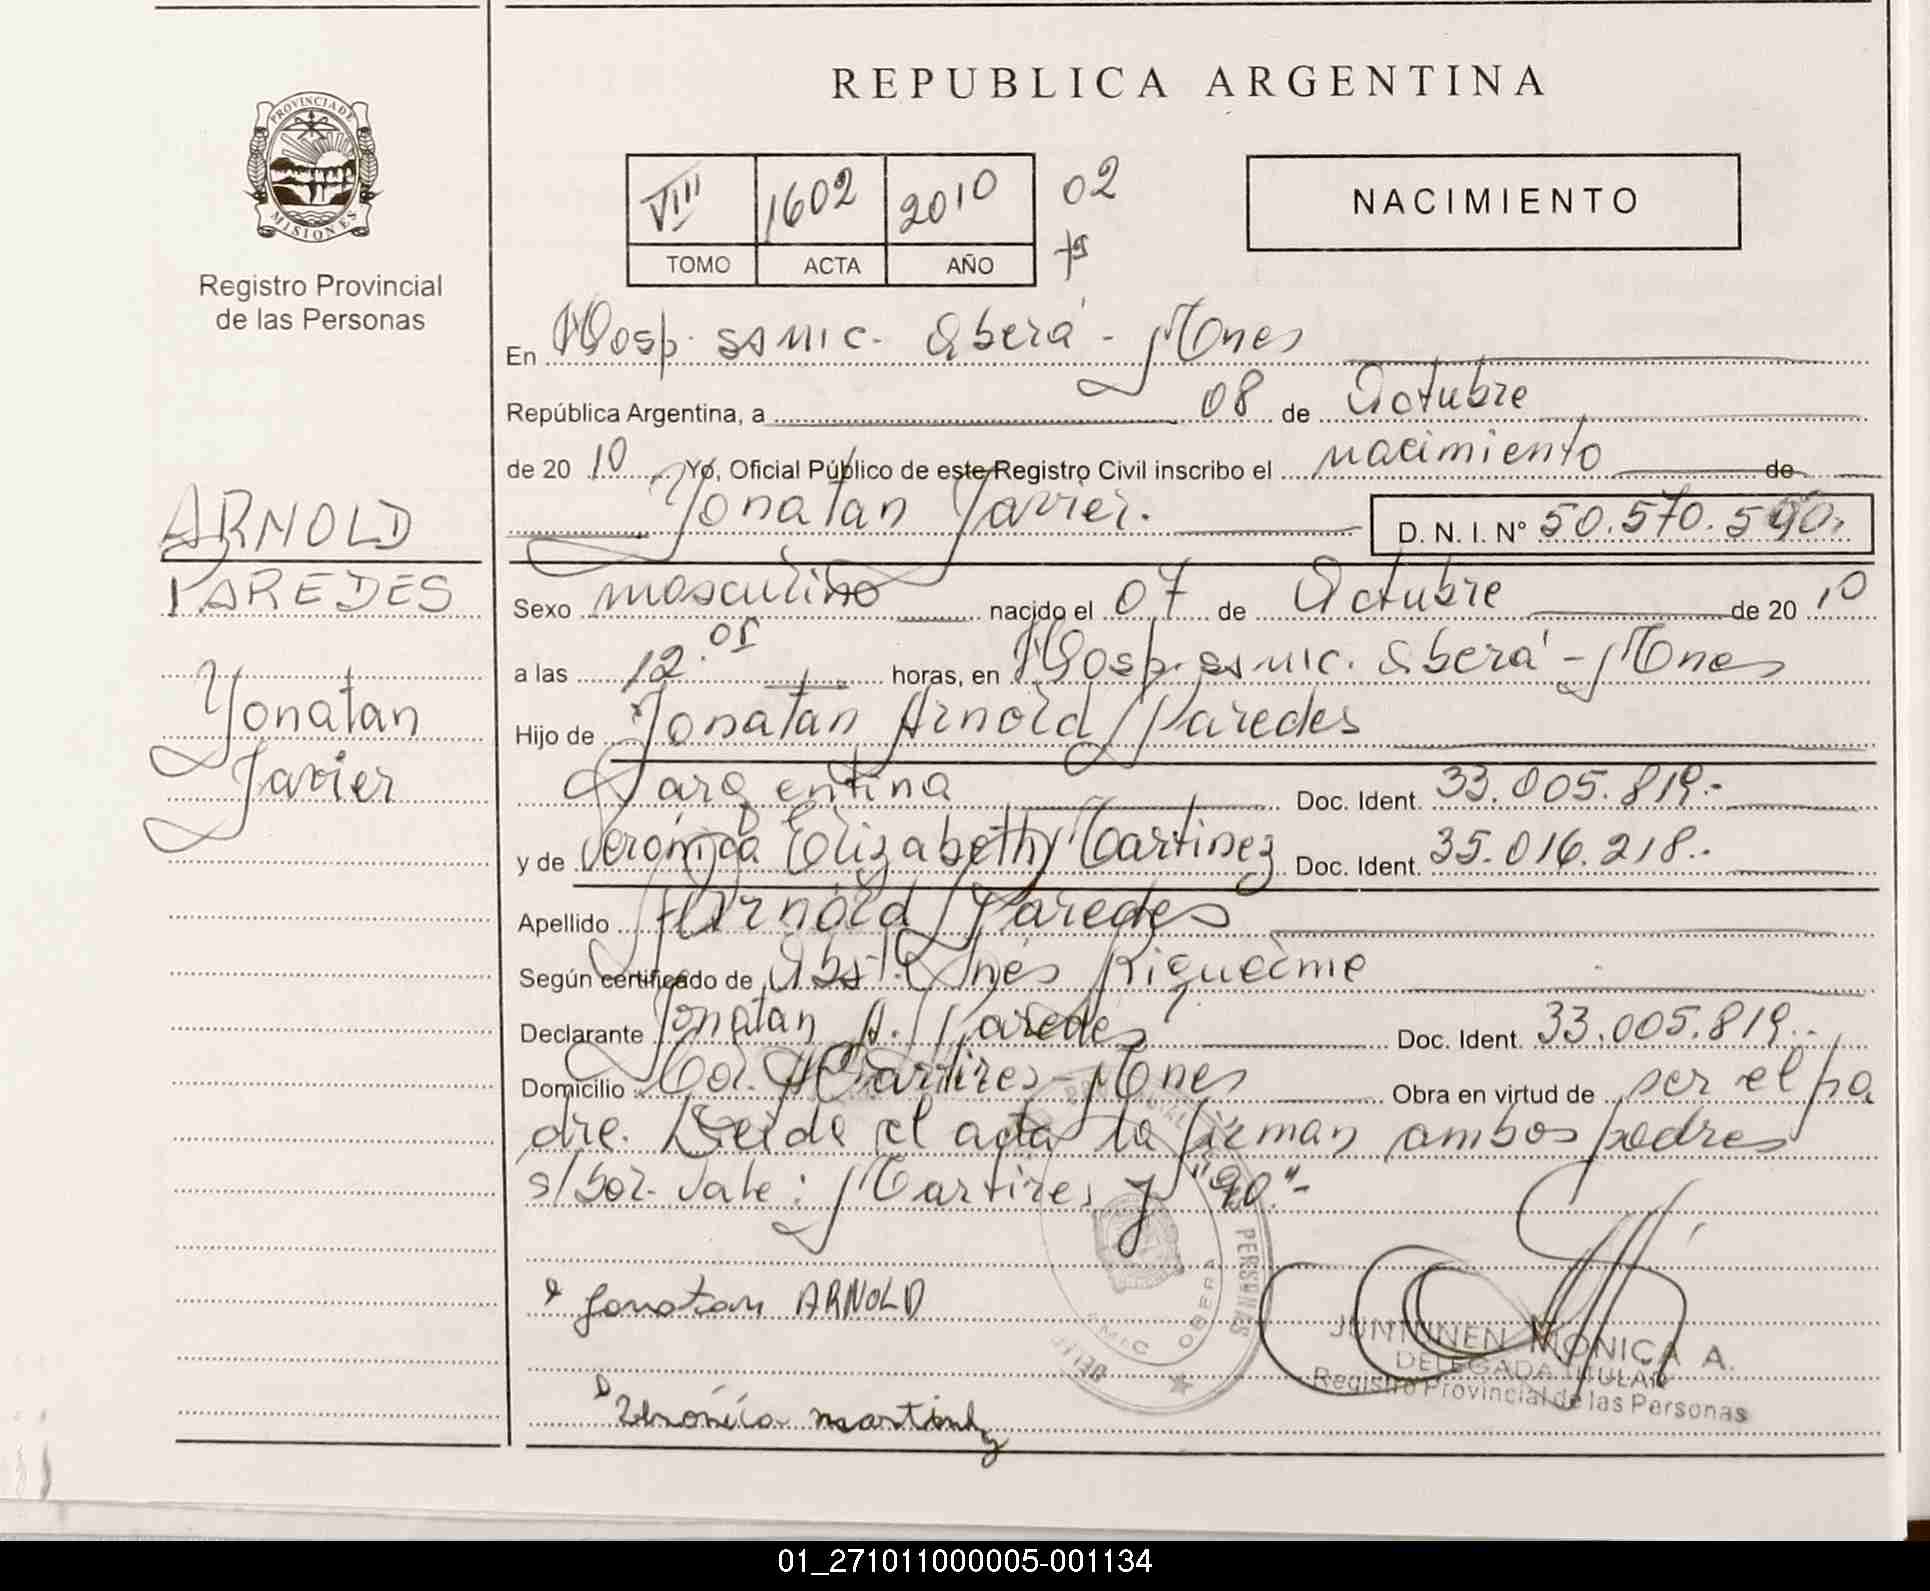 REPUBLICA ARGENTINA
PROVINCIA DE
MISIONES
Registro Provincial
de las Personas
VIII 1602 2010 02
TOMO ACTA AÑO
NACIMIENTO
En Hosp. SAMIC. Oberá - Mnes
República Argentina, a 08 de Octubre
de 20 10 Yo, Oficial Público de este Registro Civil inscribo el nacimiento de
Yonatan Javier.
D. N. I. N° 50.570.590.
ARNOLD
PAREDES
Yonatan
Javier
Sexo masculino nacido el 07 de Octubre de 20 10
a las 12.05 horas, en Hosp. SAMIC. Oberá - Mnes
Hijo de Jonatan Arnold Paredes
argentina Doc. Ident. 33.005.819.-
y de Verónica Elizabeth Martinez Doc. Ident. 35.016.218.-
Apellido Arnold Paredes
Según certificado de Obst. Inés Riquelme
Declarante Jonatan A. Paredes Doc. Ident. 33.005.819.-
Domicilio Col. Martires - Mnes Obra en virtud de ser el pa
dre. Leída el acta la firman ambos padres
s/bor. vale: Martires y "90".-
PERSONAS
OBERA
Jonatan ARNOLD
Verónica martinez
JUNTUNEN MONICA A.
DELEGADA TITULAR
Registro Provincial de las Personas
01_271011000005-001134